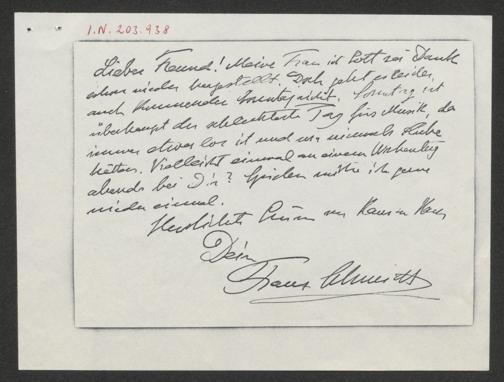 I.N. 203.938
Lieber Freund! Meine Frau ist Gott sei Dank
schon wieder hergestellt. Doch geht es leider
auch kommenden Sonntag nicht. Sonntag ist
überhaupt der schlechteste Tag für Musik, da
immer etwas los ist und wir niemals Ruhe
hätten. Vielleicht einmal an einem Wochentag
abends bei Dir? Spielen möchte ich gerne
wieder einmal.
Herzlichste Grüsse von Haus zu Haus
Dein
Franz Schmidt